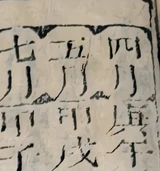 四月庚午
五月甲戌
七月甲子